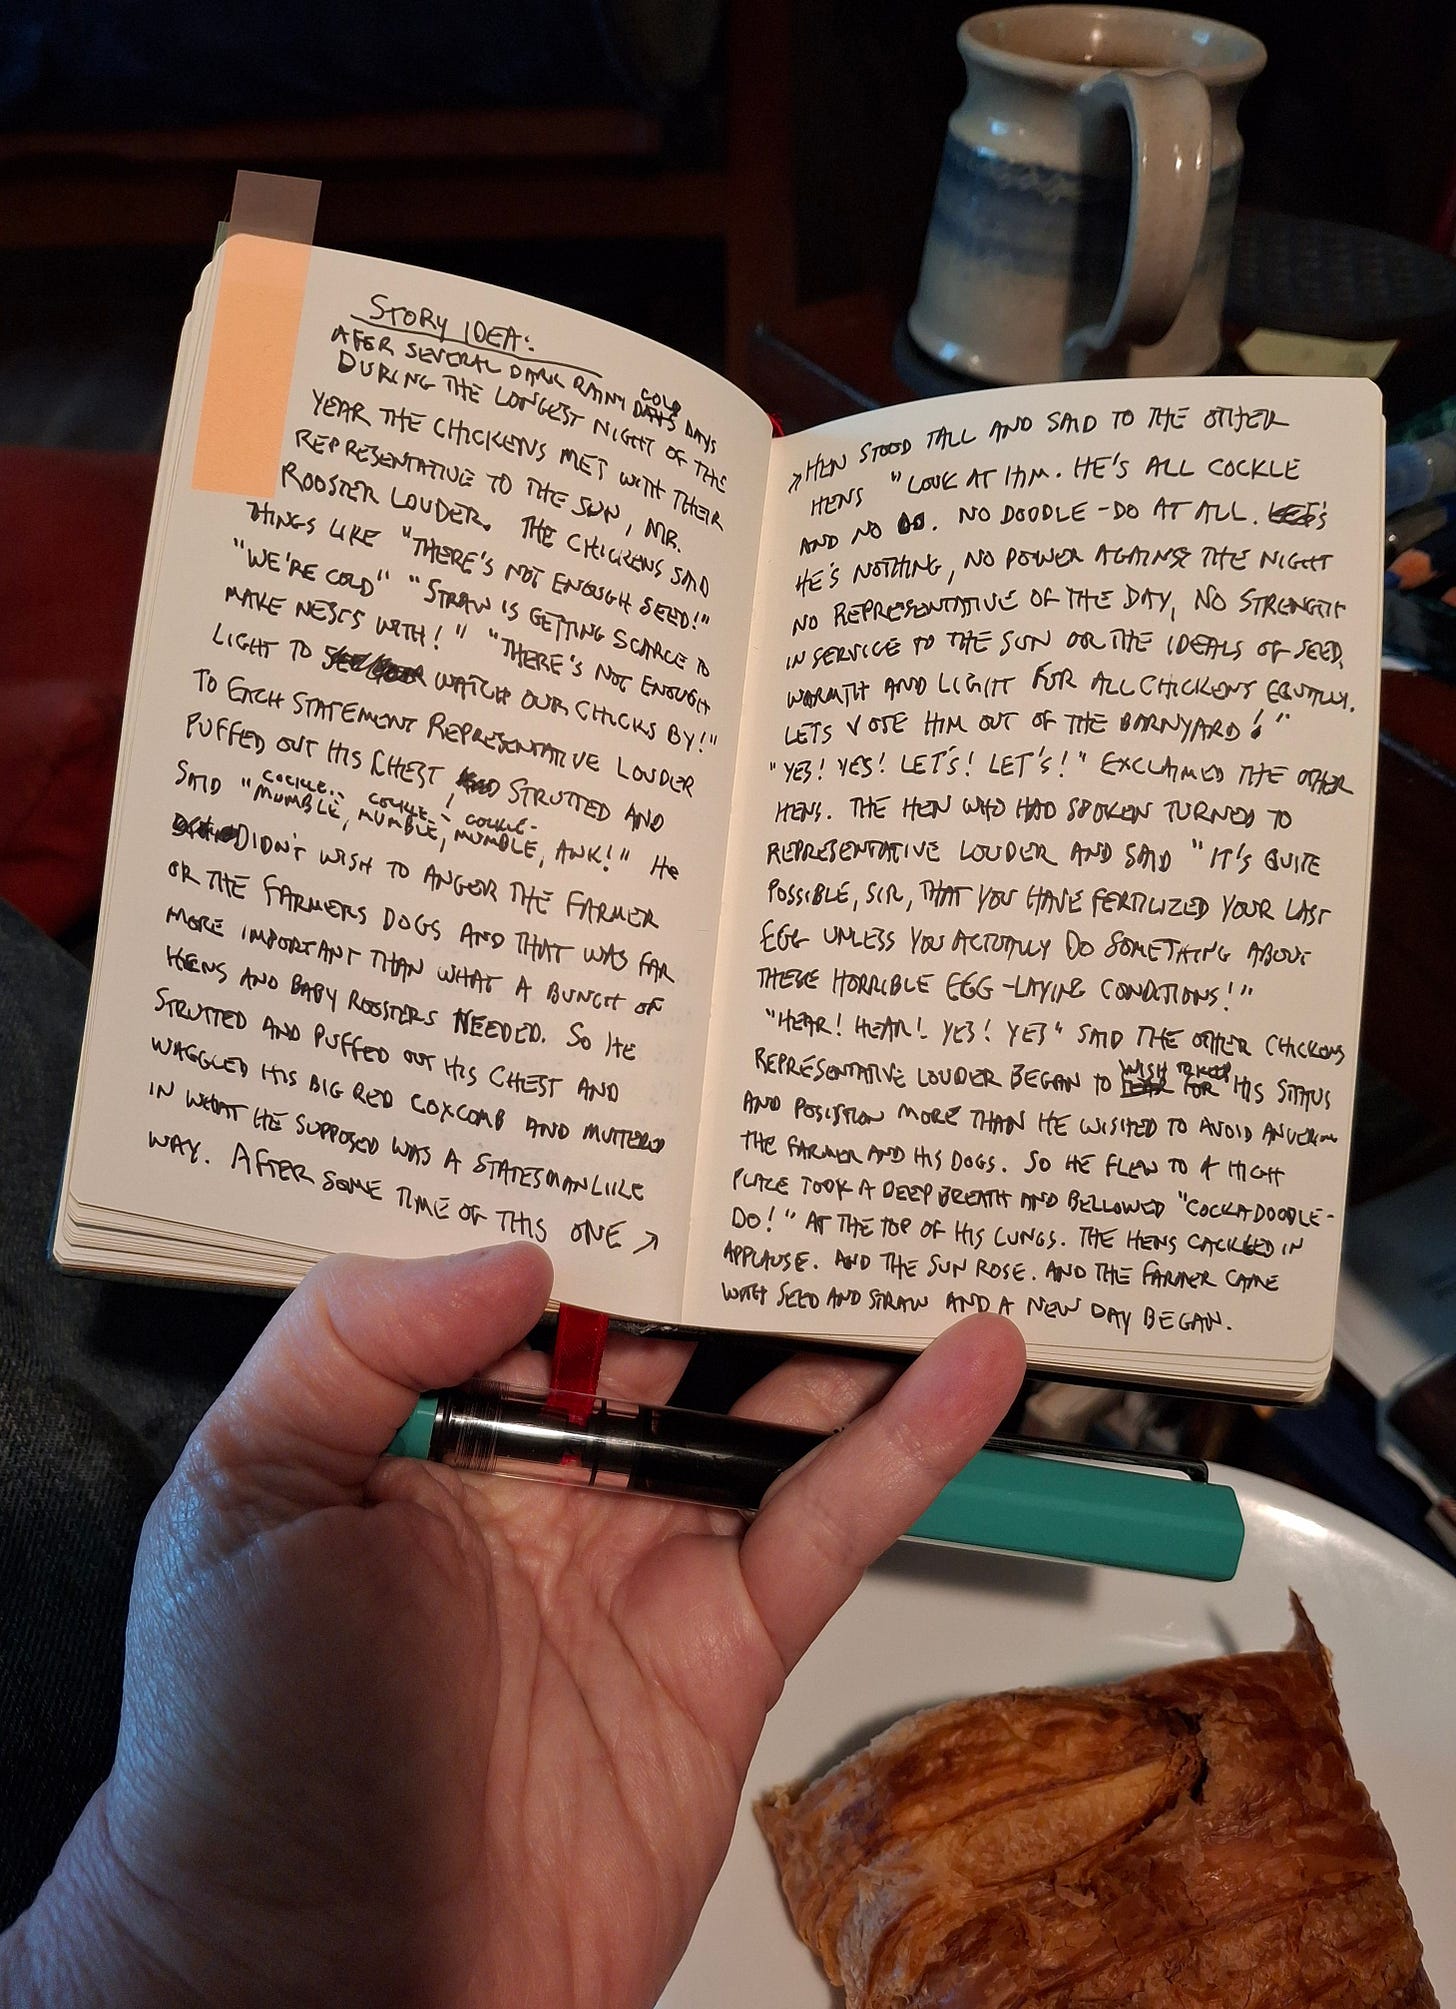 STORY IDEA:
AFER SEVERAL DARK RAINY COLD DAYS
DURING THE LONGEST NIGHT OF THE
YEAR THE CHICKENS MET WITH THEIR
REPRESENTATIVE TO THE SUN, MR.
ROOSTER LOUDER. THE CHICKENS SAID
THINGS LIKE "THERE'S NOT ENOUGH SEED!"
"WE'RE COLD" "STRAW IS GETTING SCARCE TO
MAKE NESTS WITH!" "THERE'S NOT ENOUGH
LIGHT TO WATCH OUR CHICKS BY!"
TO EACH STATEMENT REPRESENTATIVE LOUDER
PUFFED OUT HIS CHEST, STRUTTED AND
COCKLE.. COCKLE-- COCKLE-
SAID "MUMBLE, MUMBLE, MUMBLE, AWK!" HE
DIDN'T WISH TO ANGER THE FARMER
OR THE FARMERS DOGS AND THAT WAS FAR
MORE IMPORTANT THAN WHAT A BUNCH OF
HENS AND BABY ROOSTERS NEEDED. SO HE
STRUTTED AND PUFFED OUT HIS CHEST AND
WAGGLED HIS BIG RED COXCOMB AND MUTTERED
IN WHAT HE SUPPOSED WAS A STATESMANLIKE
WAY. AFTER SOME TIME OF THIS ONE →
→ HEN STOOD TALL AND SAID TO THE OTHER
HENS "LOOK AT HIM. HE'S ALL COCKLE
AND NO DO. NO DOODLE-DO AT ALL.
HE'S NOTHING, NO POWER AGAINST THE NIGHT
NO REPRESENTATIVE OF THE DAY, NO STRENGTH
IN SERVICE TO THE SUN OR THE IDEALS OF SEED,
WARMTH AND LIGHT FOR ALL CHICKENS EQUALLY.
LETS VOTE HIM OUT OF THE BARNYARD!"
"YES! YES! LET'S! LET'S!" EXCLAIMED THE OTHER
HENS. THE HEN WHO HAD SPOKEN TURNED TO
REPRESENTATIVE LOUDER AND SAID "IT'S QUITE
POSSIBLE, SIR, THAT YOU HAVE FERTILIZED YOUR LAST
EGG UNLESS YOU ACTUALLY DO SOMETHING ABOUT
THESE HORRIBLE EGG-LAYING CONDITIONS!"
"HEAR! HEAR! YES! YES" SAID THE OTHER CHICKENS
REPRESENTATIVE LOUDER BEGAN TO WISH TO KEEP HIS STATUS
AND POSISTION MORE THAN HE WISHED TO AVOID ANGERING
THE FARMER AND HIS DOGS. SO HE FLEW TO A HIGH
PLACE TOOK A DEEP BREATH AND BELLOWED "COCKADOODLE-
DO!" AT THE TOP OF HIS LUNGS. THE HENS CACKLED IN
APPLAUSE. AND THE SUN ROSE. AND THE FARMER CAME
WITH SEED AND STRAW AND A NEW DAY BEGAN.